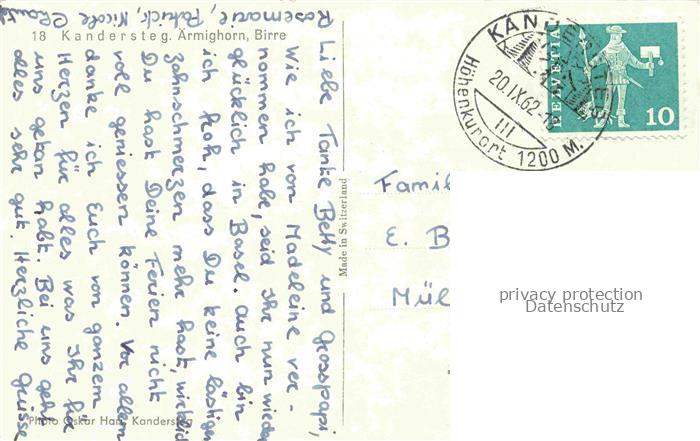 18 Kandersteg. Ärmighorn, Birre
Liebe Tante Betty und Grosspapi,
Wie ich von Madeleine ver-
nommen habe, seid Ihr nun wieder
glücklich in Basel. Auch bin
ich froh, dass Du keine lästigen
Zahnschmerzen mehr hast, wirklich
Du hast Deine Ferien nicht
voll geniessen können. Vor allem
danke ich Euch von ganzem
Herzen für alles was Ihr für
uns getan habt. Bei uns geht
alles sehr gut. Herzliche Grüsse
Rosemarie, Patrick, Nicole
Photo Oskar Hari, Kandersteg
Made in Switzerland
KANDERSTEG
20.IX.62
III
Höhenkurort 1200 M.
HELVETIA
10
Famil
E. B
Mül
privacy protection
Datenschutz